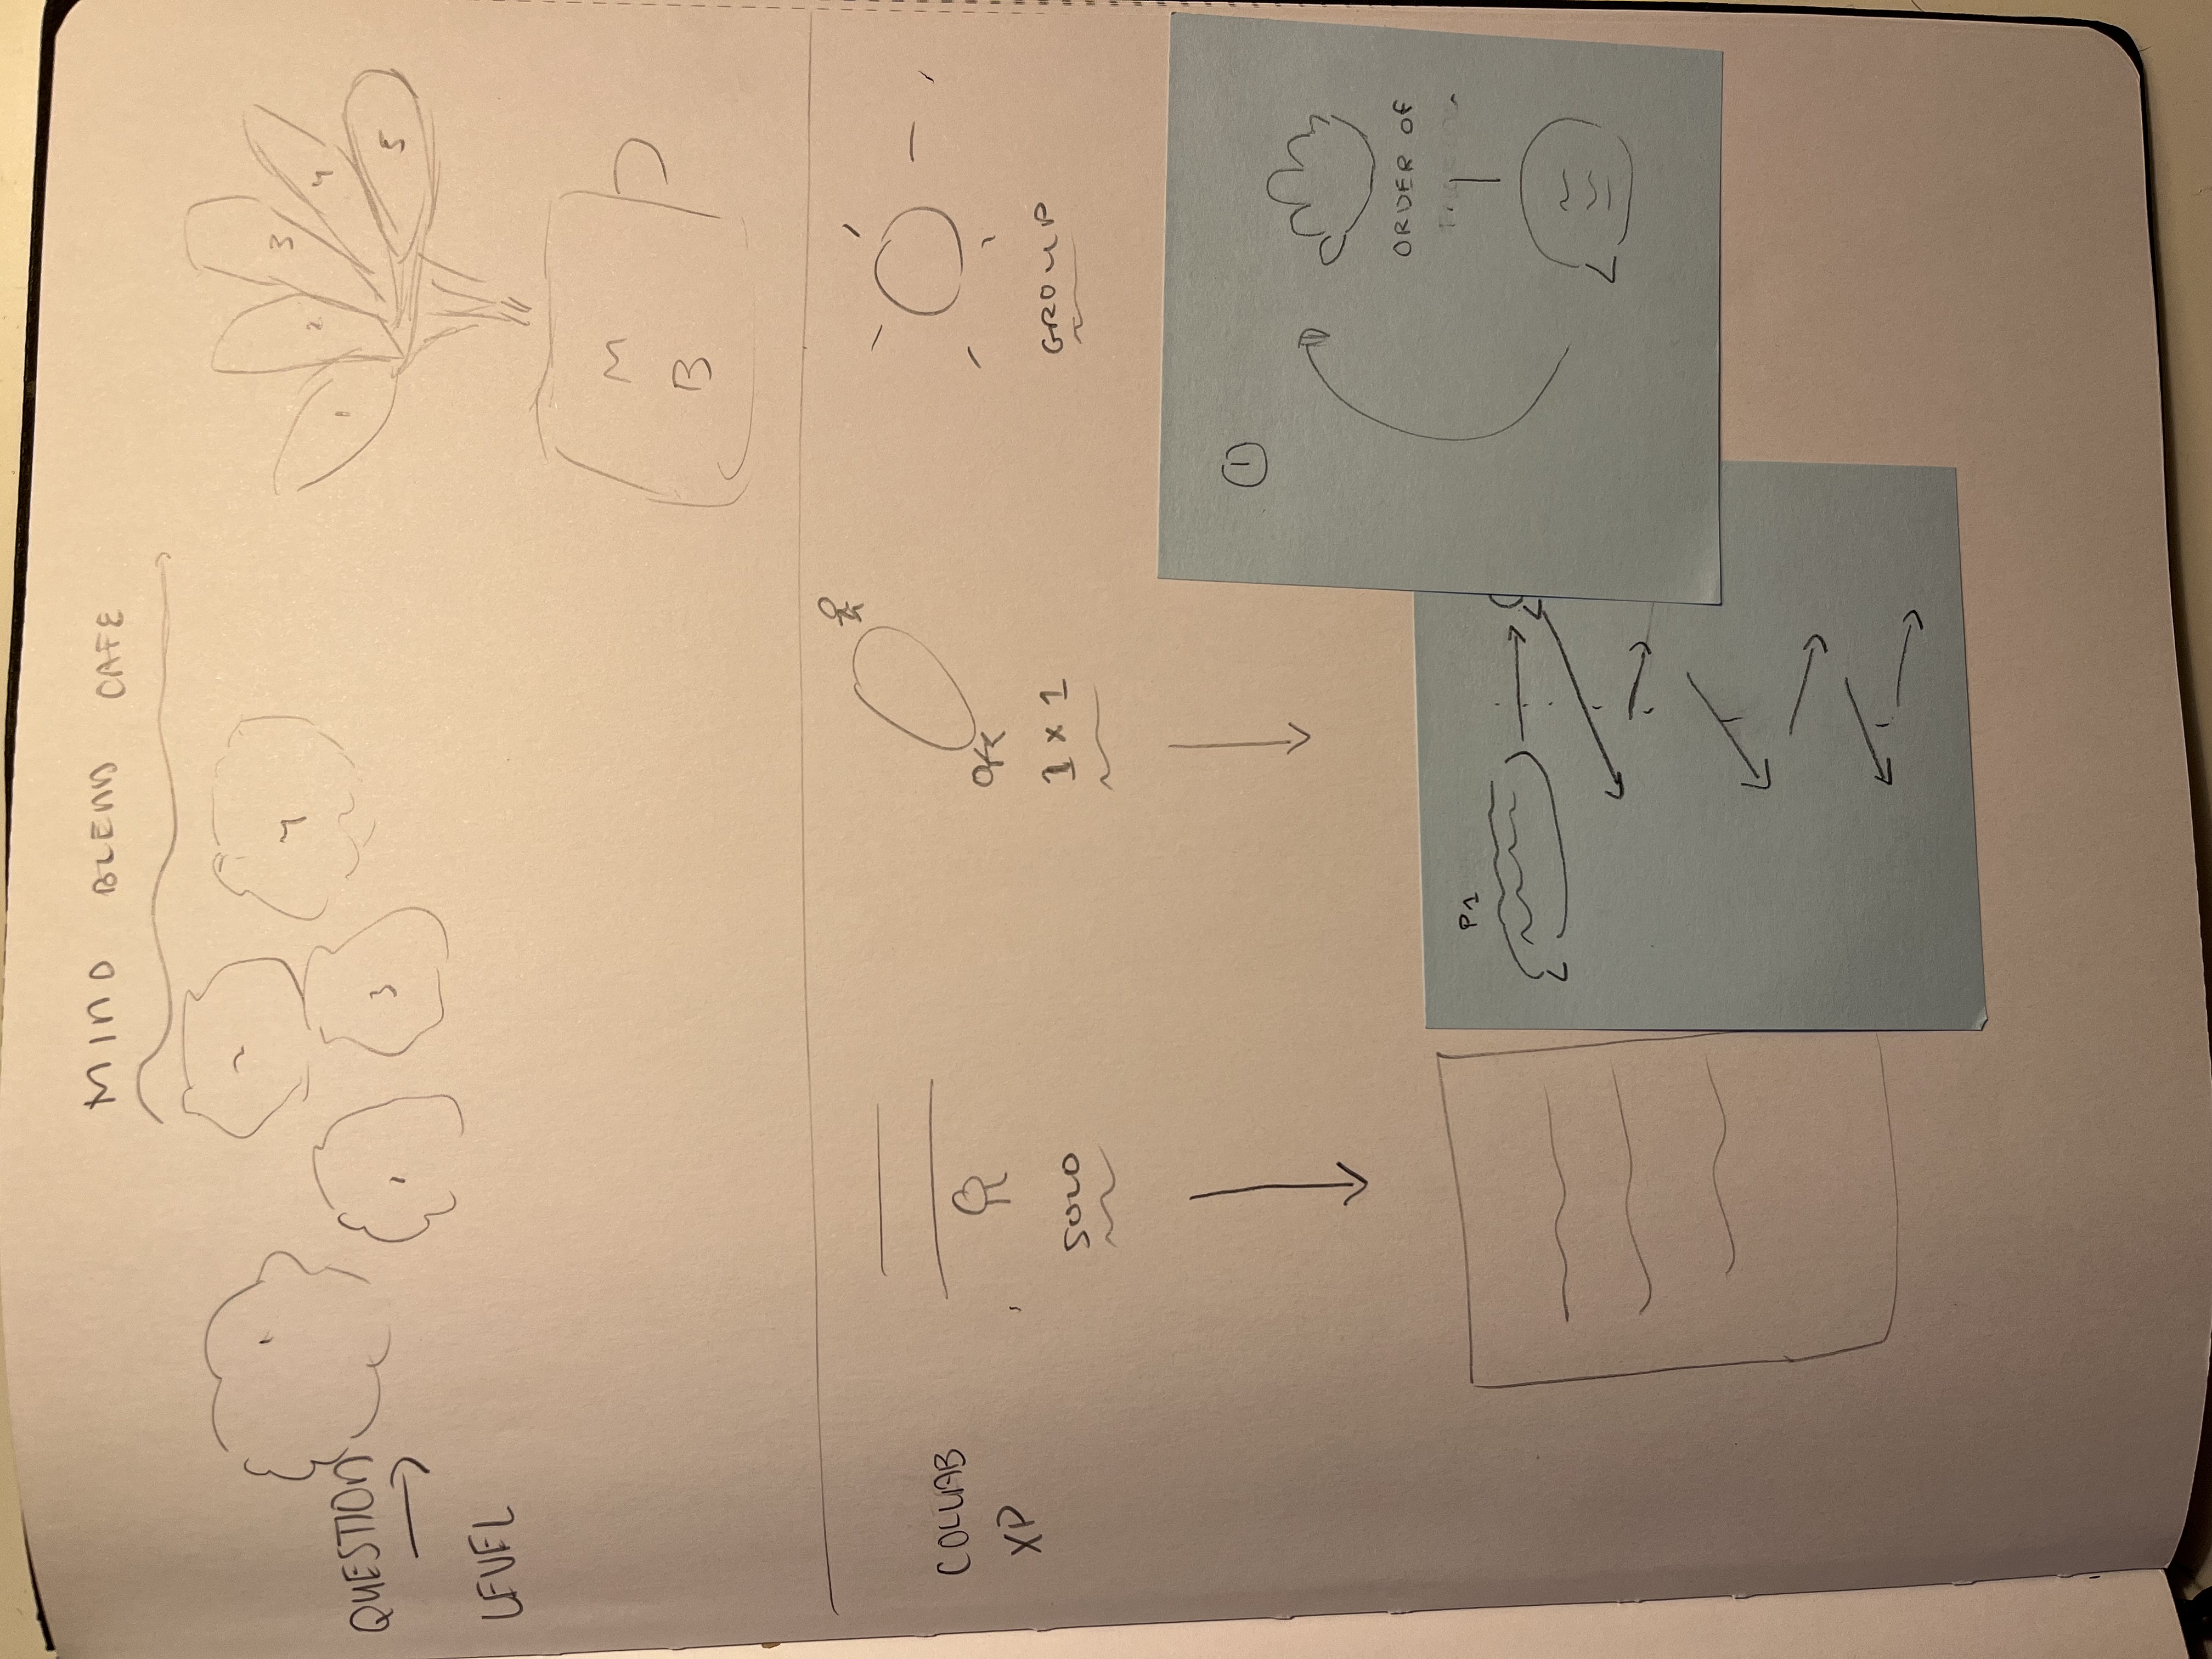 MIND BLEND CAFE
1
2
4
1
3
QUESTION
LEVEL
1
2
3
4
5
M
B
COLLAB
XP
SOLO
1 x 1
GROUP
1
ORDER OF
P1